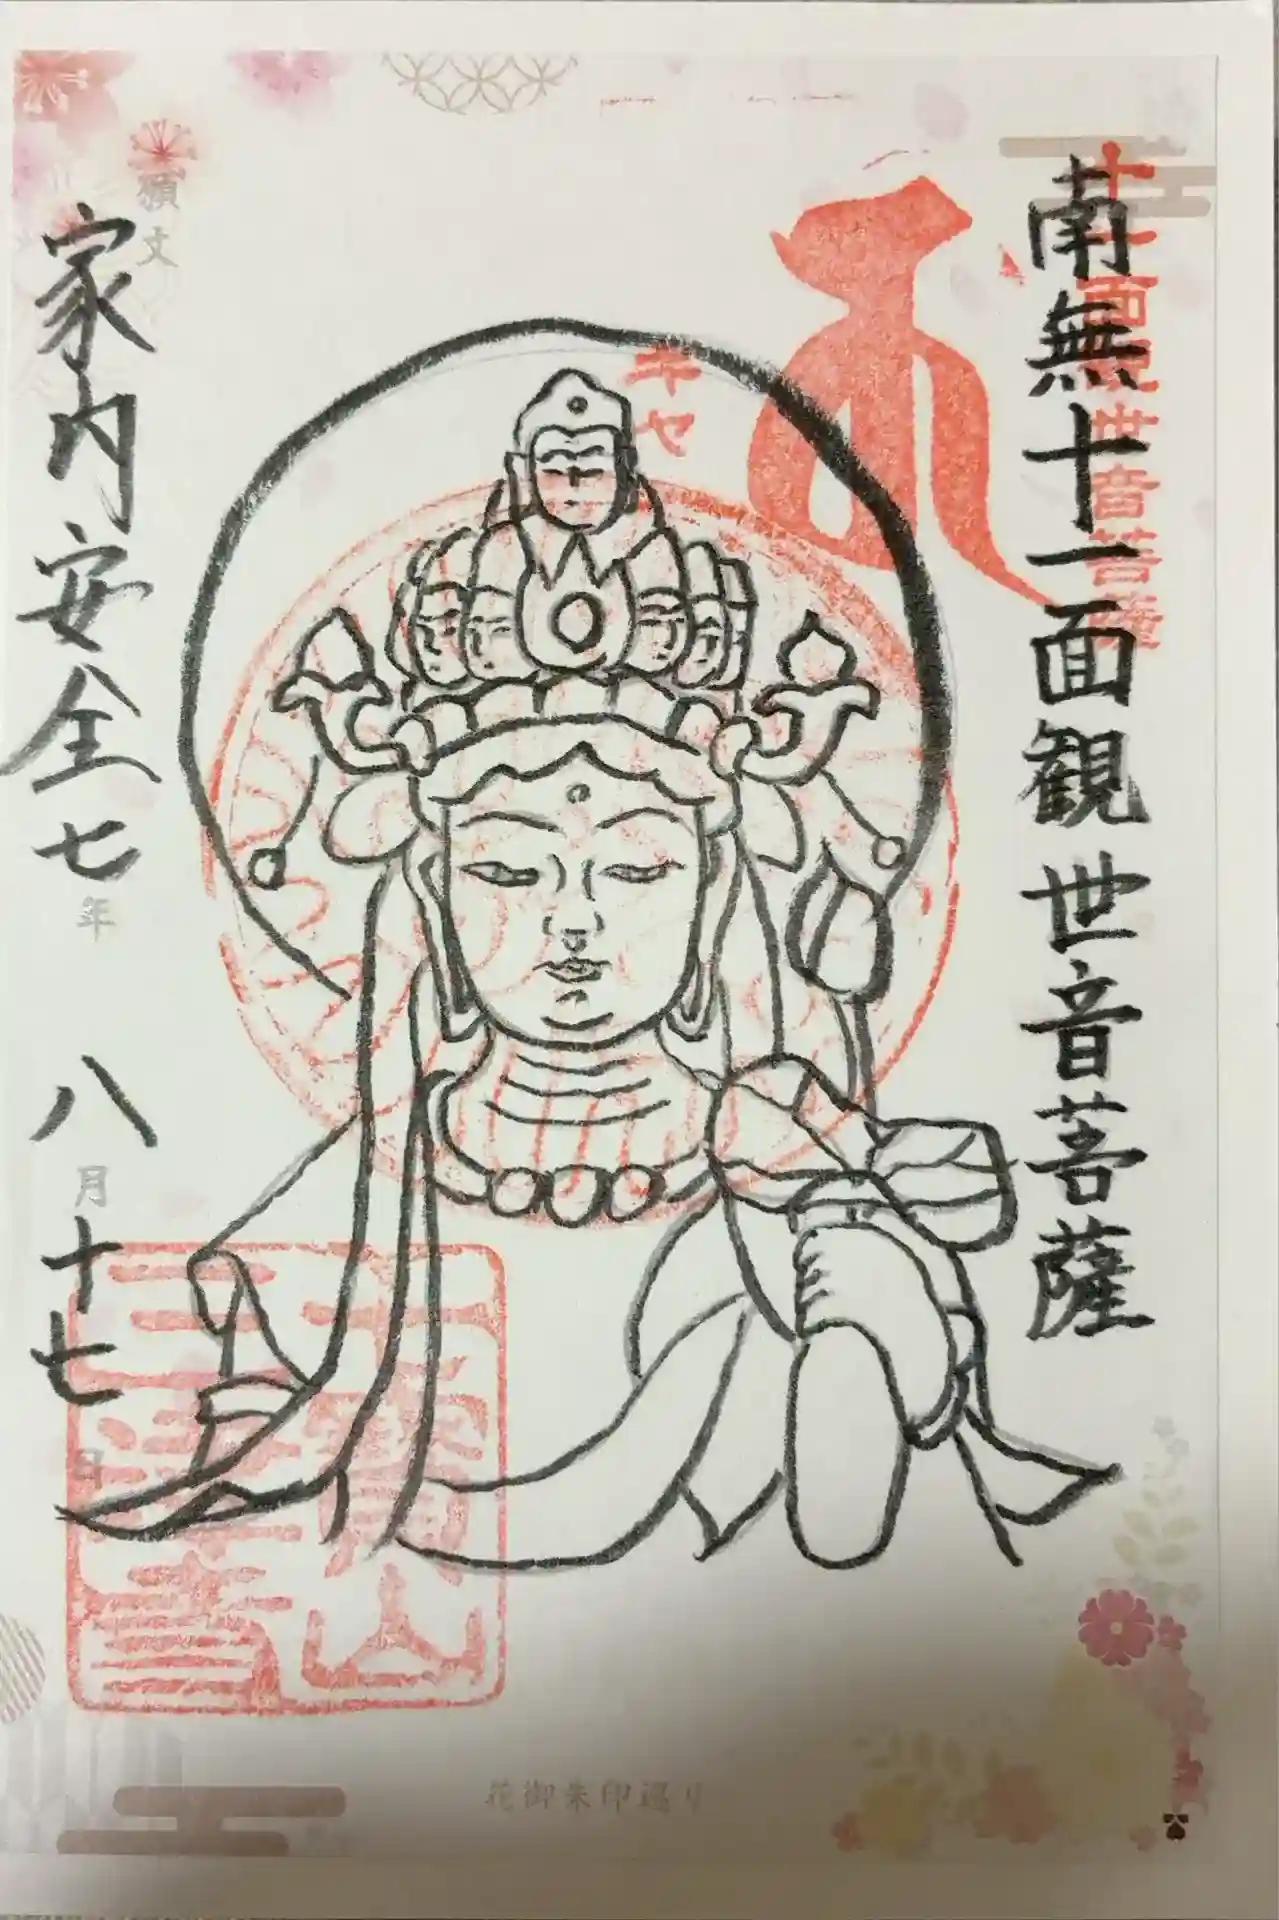 南無十一面観世音菩薩
十一面観世音菩薩
キャ
願文
家内安全
七年八月十七日
花御朱印巡り